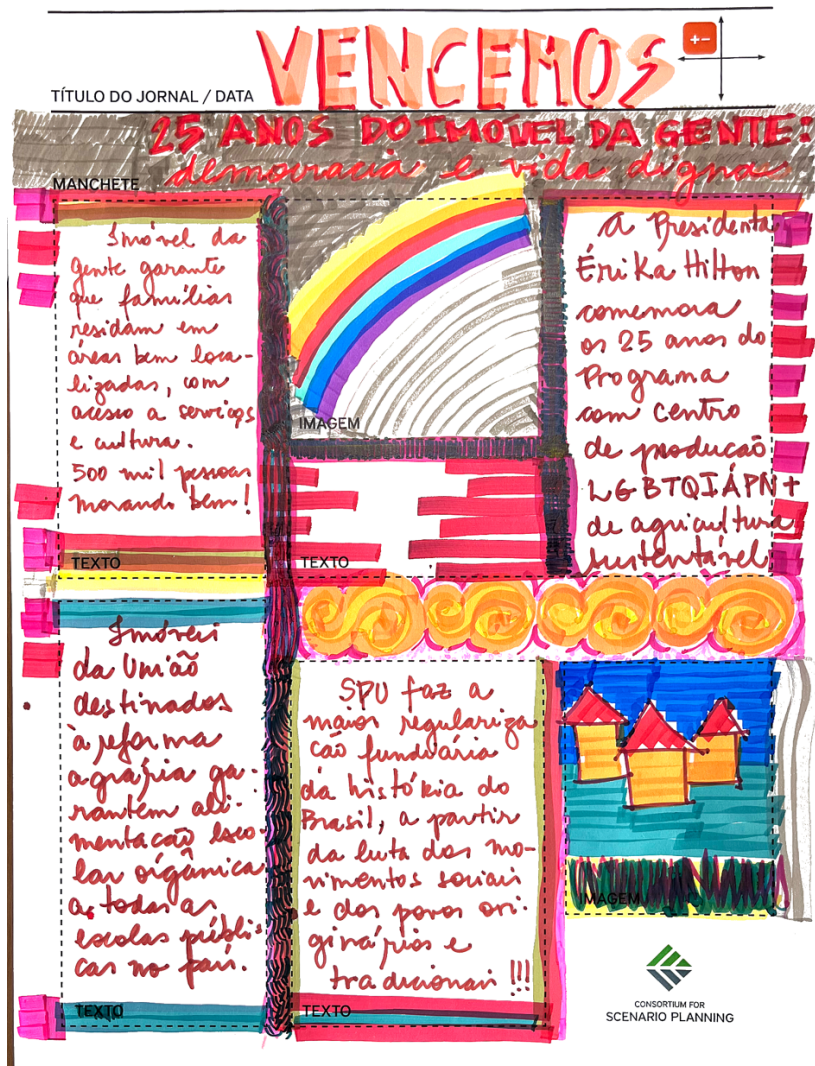 VENCEMOS
+-
TÍTULO DO JORNAL / DATA
25 ANOS DO IMÓVEL DA GENTE:
democracia e vida digna
MANCHETE
Imóvel da
gente garante
que famílias
residam em
áreas bem loca-
lizadas, com
acesso a serviços
e cultura.
500 mil pessoas
morando bem!
TEXTO
IMAGEM
TEXTO
A Presidenta
Érika Hilton
comemora
os 25 anos do
Programa
com centro
de produção
LGBTQIAPN+
de agricultura
sustentável
Imóveis
da União
destinados
à reforma
agrária ga-
rantem ali-
mentação esco-
lar orgânica
a todas as
escolas públi-
cas no país.
TEXTO
SPU faz a
maior regulariza
ção fundiária
da história do
Brasil, a partir
da luta dos mo-
vimentos sociais
e dos povos ori-
ginários e
tradicionais!!!
TEXTO
IMAGEM
CONSORTIUM FOR
SCENARIO PLANNING